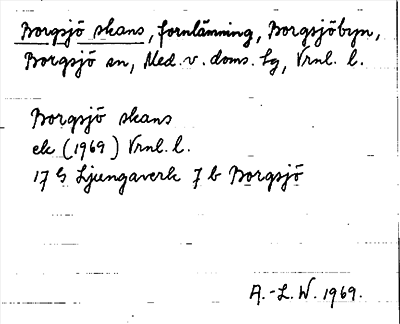 Borgsjö skans, fornlämning, Borgsjöbyn,
Borgsjö sn, Med. v. doms. lg, Vrnl. l.
Borgsjö skans
ek (1969) Vrnl. l.
17 G Ljungaverk 7 b Borgsjö
A.-L. W. 1969.